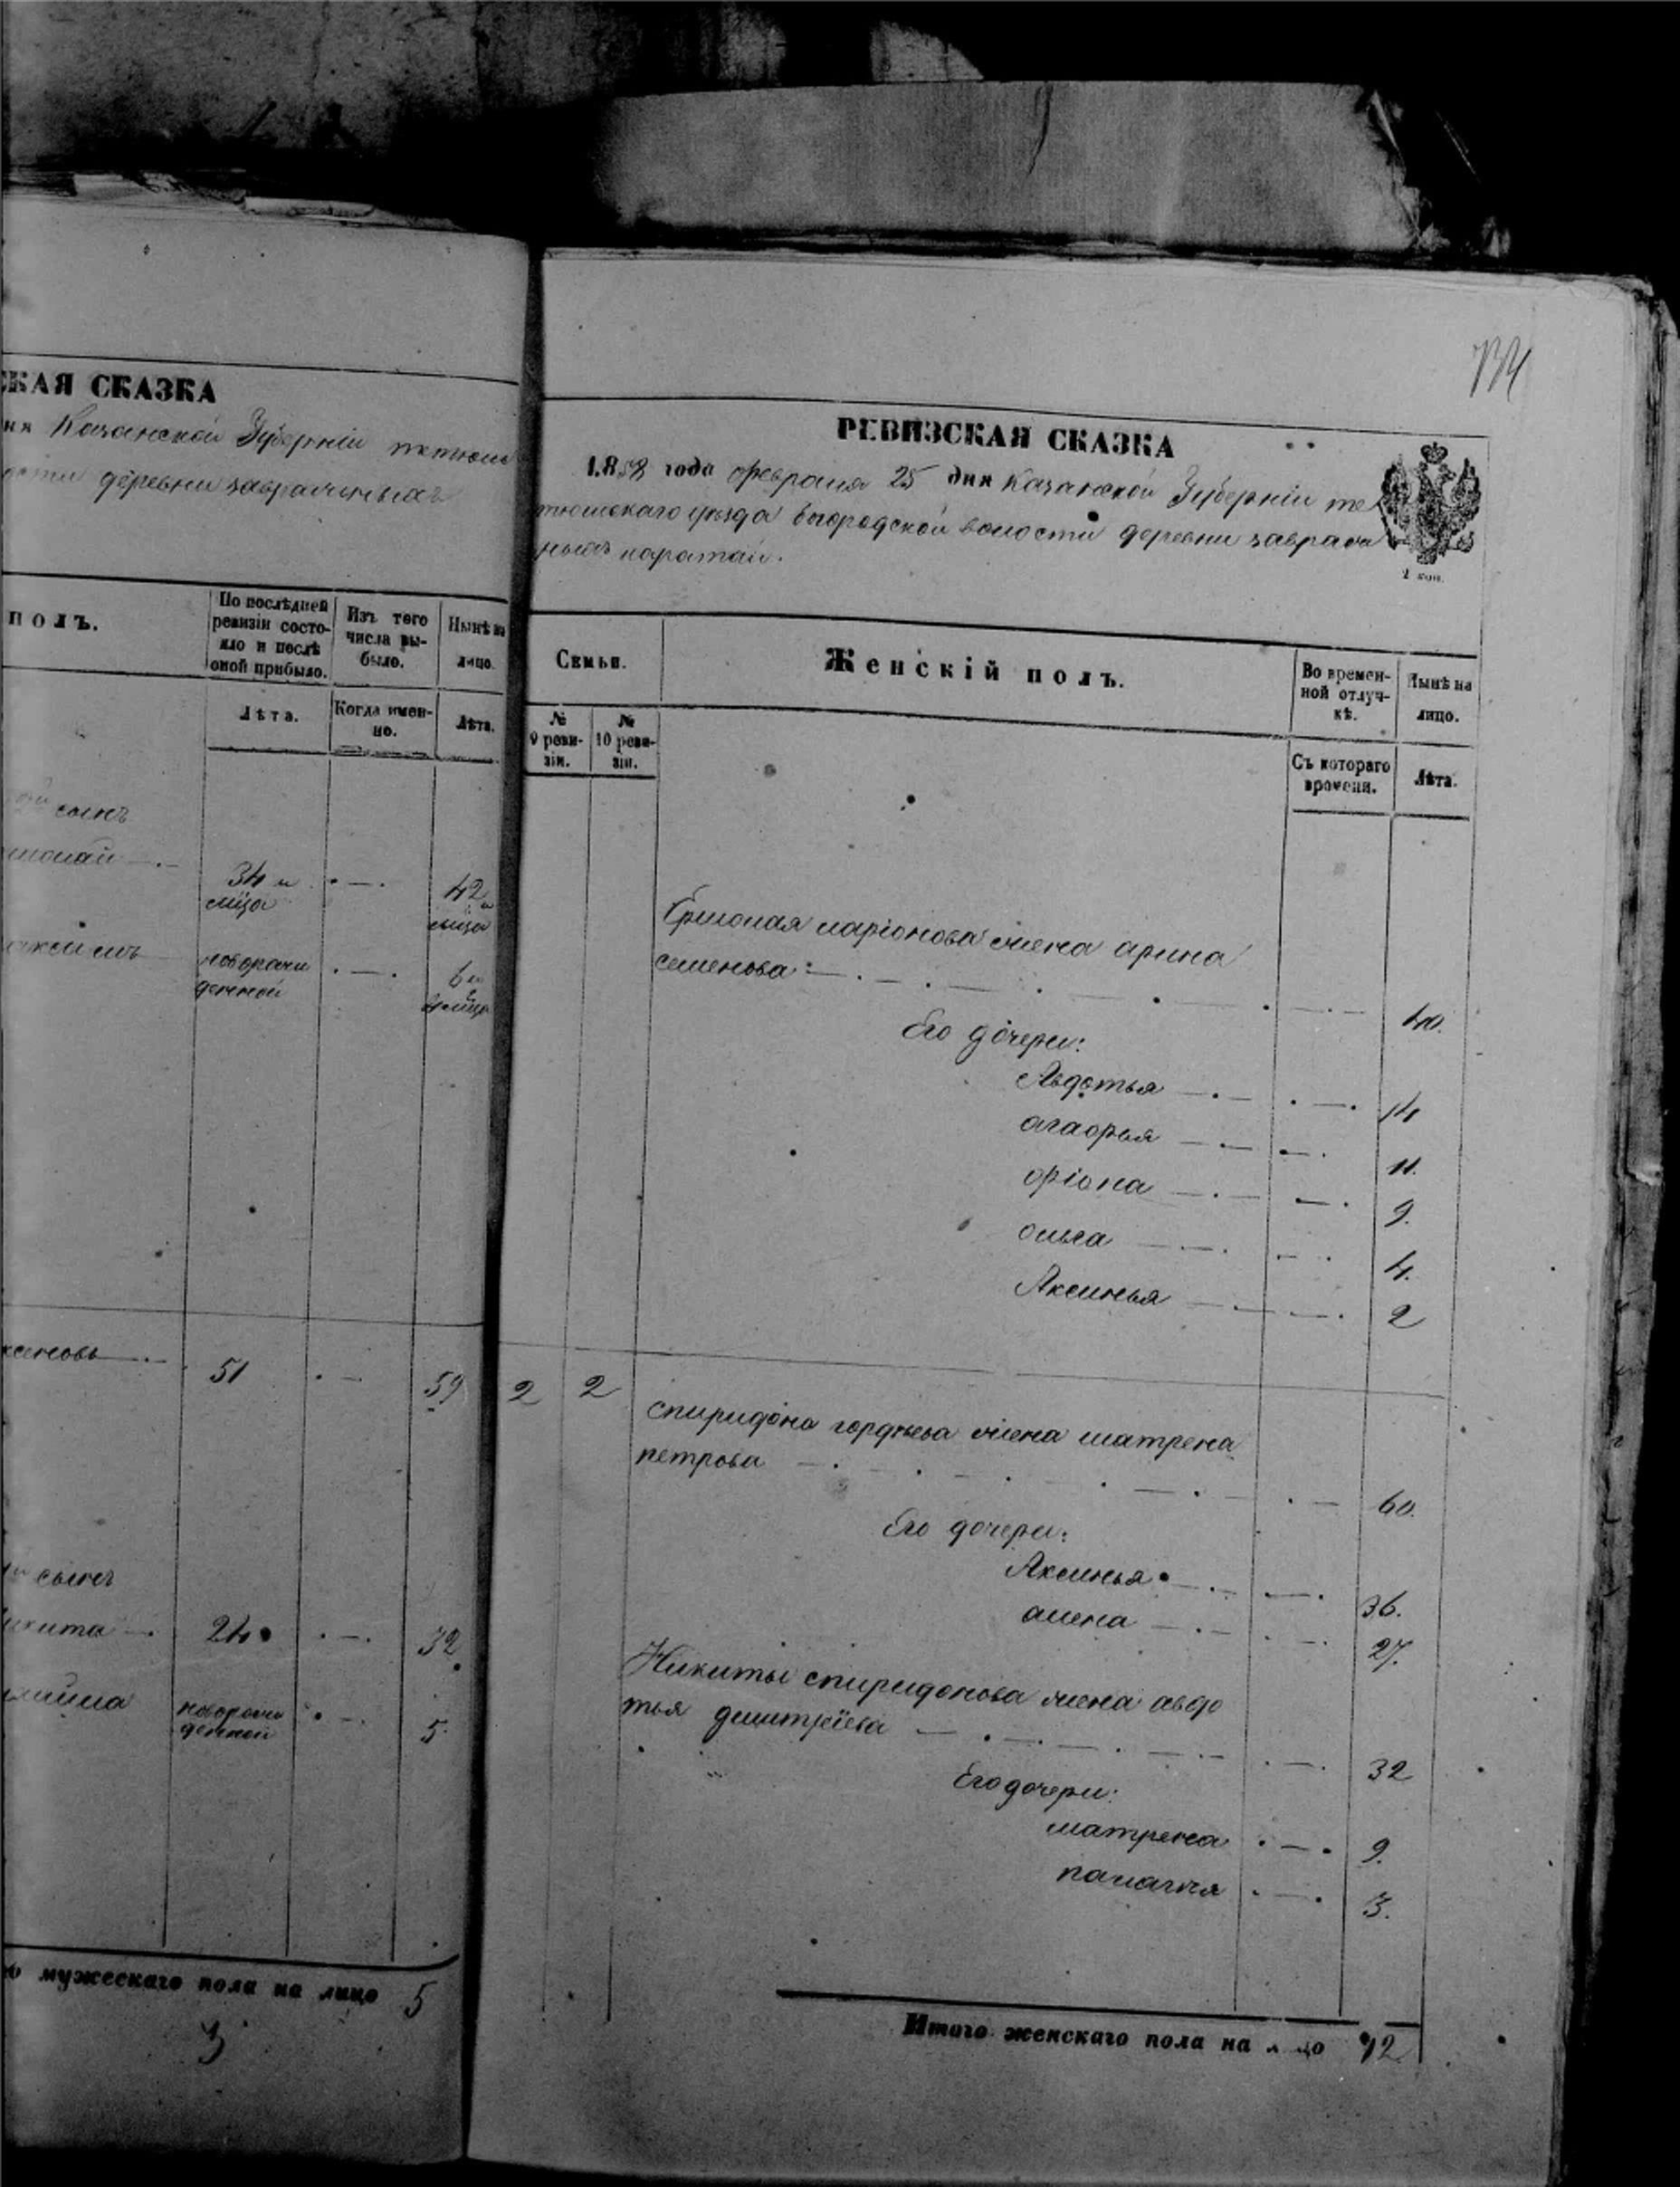 СКАЯ СКАЗКА
ня Казанской Губерніи тетюш
ости деревни завражныхъ
полъ.
По послѣдней ревизіи состо-
яло и послѣ
оной прибыло.
Изъ того
числа вы-
было.
Нынѣ на
лицо.
Лѣта.
Когда имен-
но.
Лѣта.
сынъ
34 и
42 и
новорож
денной
6 и
51
59
сынъ
икита 24 32
новорож
денной
5
мужескаго пола на лицо 5
3
134
РЕВИЗСКАЯ СКАЗКА
1858 года февраля 25 дня Казанской Губерніи те
тюшскаго уезда богородской волости деревни завраж
ныхъ каратаи.
1 коп.
Семьи.
Женскій полъ.
Во времен-
ной отлуч-
кѣ.
Нынѣ на
лицо.
№
9 реви-
зіи.
№
10 реви-
зіи.
Съ котораго
времени.
Лѣта.
Ермолая ларіонова жена арина
семенова: 40.
Его дочери:
Авдотья 14
агафья 11.
9.
ольга 4.
Аксинья 2
2 2
спиридона гордѣева жена матрена
петрова 60.
Его дочери:
Аксинья 36.
алена 27.
Никиты спиридонова жена авдо
тья дмитреіева 32
Его дочери:
матрена 9.
палагѣя 3.
Итого женскаго пола на лицо 12